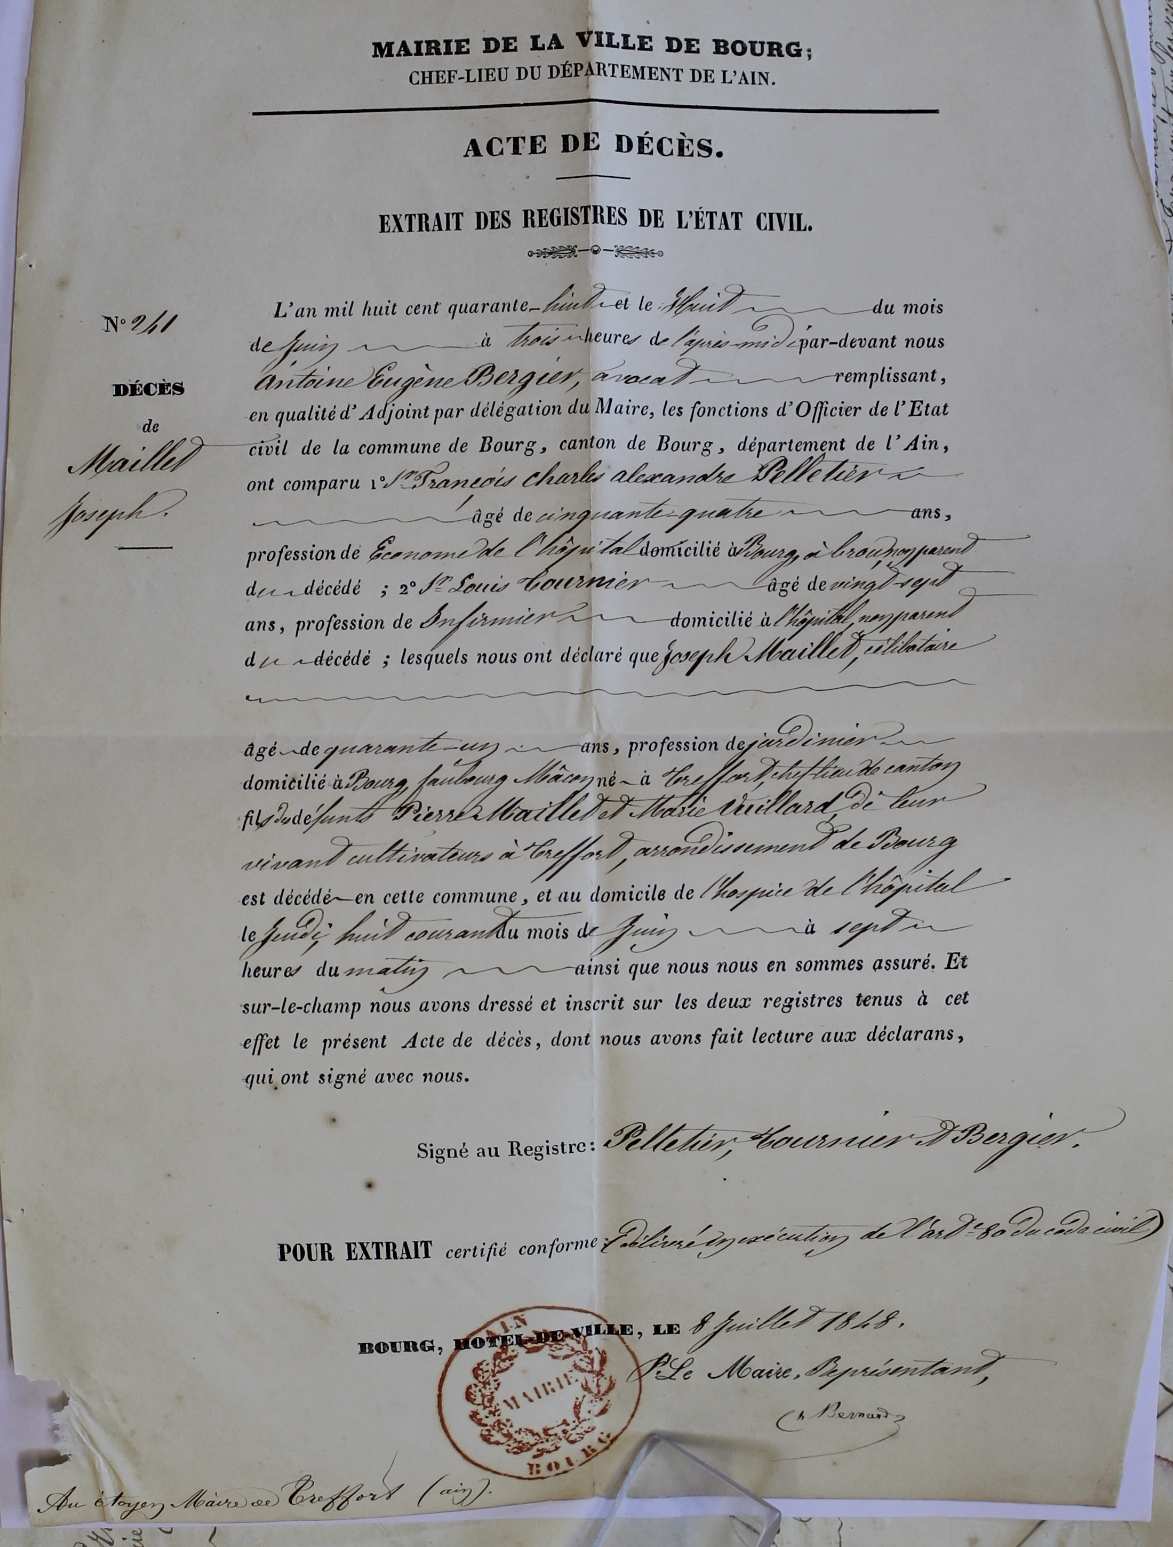 MAIRIE DE LA VILLE DE BOURG;
CHEF-LIEU DU DÉPARTEMENT DE L'AIN.
ACTE DE DÉCÈS.
EXTRAIT DES REGISTRES DE L'ÉTAT CIVIL.
N° 241
DÉCÈS
de
Maillet
Joseph.
L'an mil huit cent quarante-huit et le Huit du mois
de Juin à trois heures de l'après-midi par-devant nous
Antoine Eugène Bergier, avocat remplissant,
en qualité d'Adjoint par délégation du Maire, les fonctions d'Officier de l'Etat
civil de la commune de Bourg, canton de Bourg, département de l'Ain,
ont comparu 1° Sr. François Charles alexandre Pelletier
âgé de cinquante-quatre ans,
profession de Econome de l'hôpital domicilié à Bourg, à brou, non parent
du décédé ; 2° Sr. Louis Tournier âgé de vingt-sept
ans, profession de Infirmier domicilié à l'hôpital, non parent
du décédé ; lesquels nous ont déclaré que Joseph Maillet, célibataire
âgé de quarante-un ans, profession de jardinier
domicilié à Bourg, faubourg Mâcon né à Treffort, chef-lieu de canton
fils de défunts Pierre Maillet et Marie Vuillard, de leur
vivant cultivateurs à Treffort, arrondissement de Bourg
est décédé en cette commune, et au domicile de l'hospice de l'hôpital
le Jeudi, huit courant du mois de Juin à sept
heures du matin ainsi que nous nous en sommes assuré. Et
sur-le-champ nous avons dressé et inscrit sur les deux registres tenus à cet
effet le présent Acte de décès, dont nous avons fait lecture aux déclarans,
qui ont signé avec nous.
Signé au Registre: Pelletier, Tournier et Bergier.
POUR EXTRAIT certifié conforme: (délivré en exécution de l'art. 80 du code civil)
BOURG, HOTEL DE VILLE, LE 8 Juillet 1848.
Pr. Le Maire, Représentant,
Bernard
AIN
MAIRIE
BOURG
Au citoyen Maire de Treffort (ain).